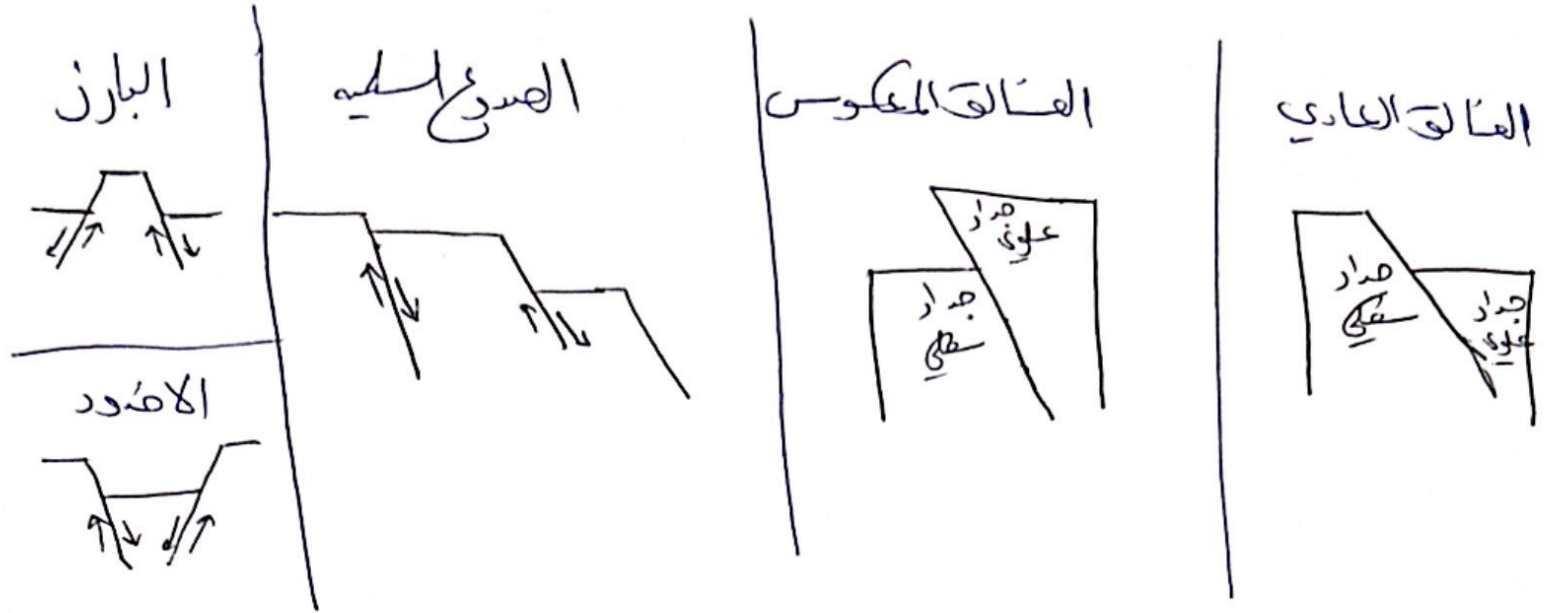 الفالق العادي
جدار
سفلي
جدار
علوي
الفالق المعكوس
جدار
علوي
جدار
سفلي
الصدوع السلميه
البارز
الاخدود